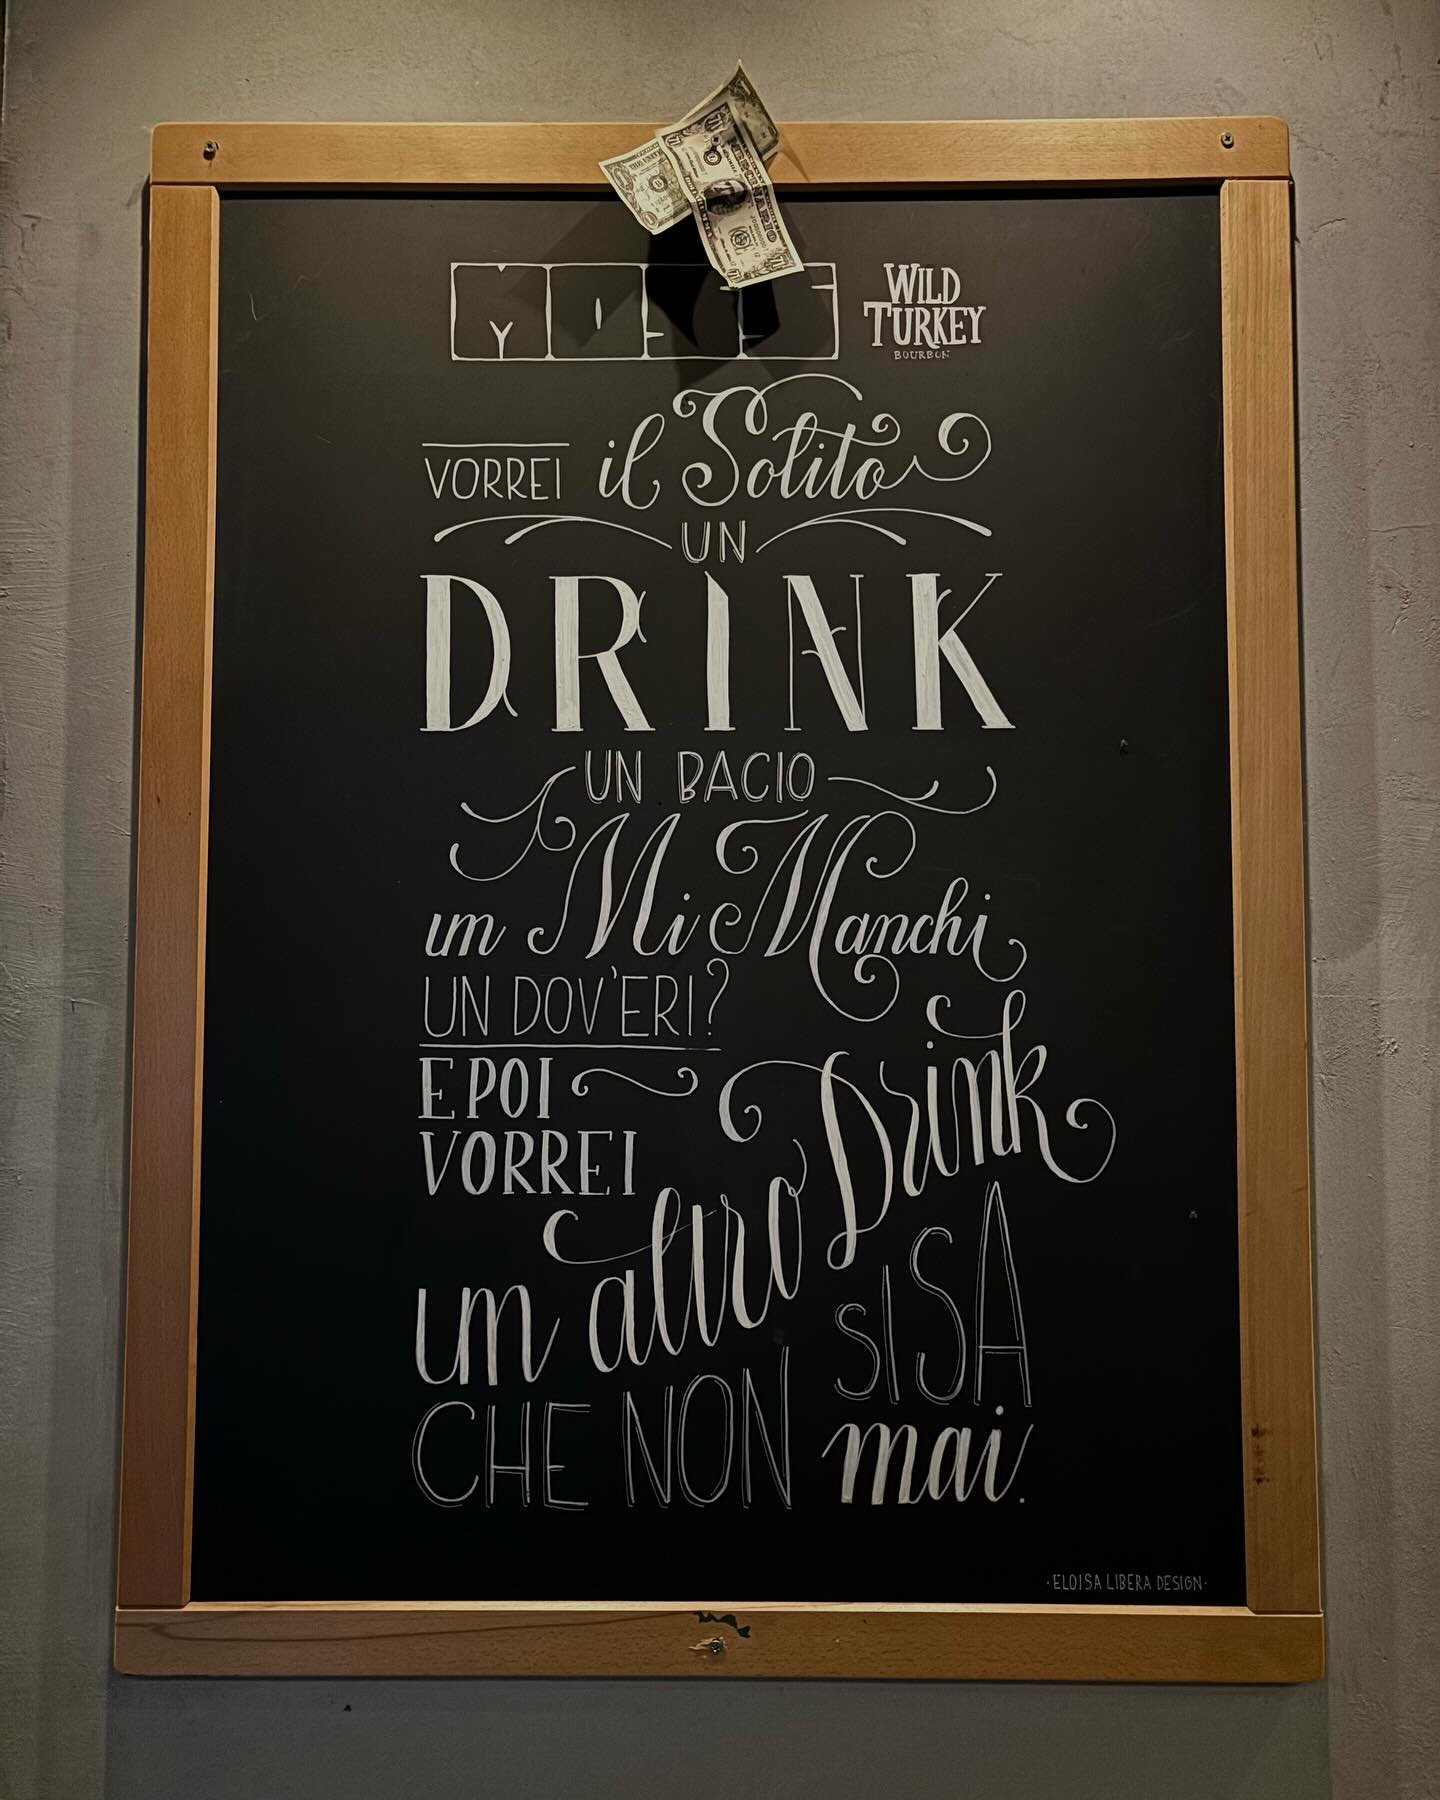 WILD
TURKEY
BOURBON
VORREI il Solito
UN
DRINK
UN BACIO
un Mi Manchi
UN DOV'ERI?
E POI
VORREI
un altro Drink
CHE NON SI SA
mai.
·ELOISA LIBERA DESIGN·